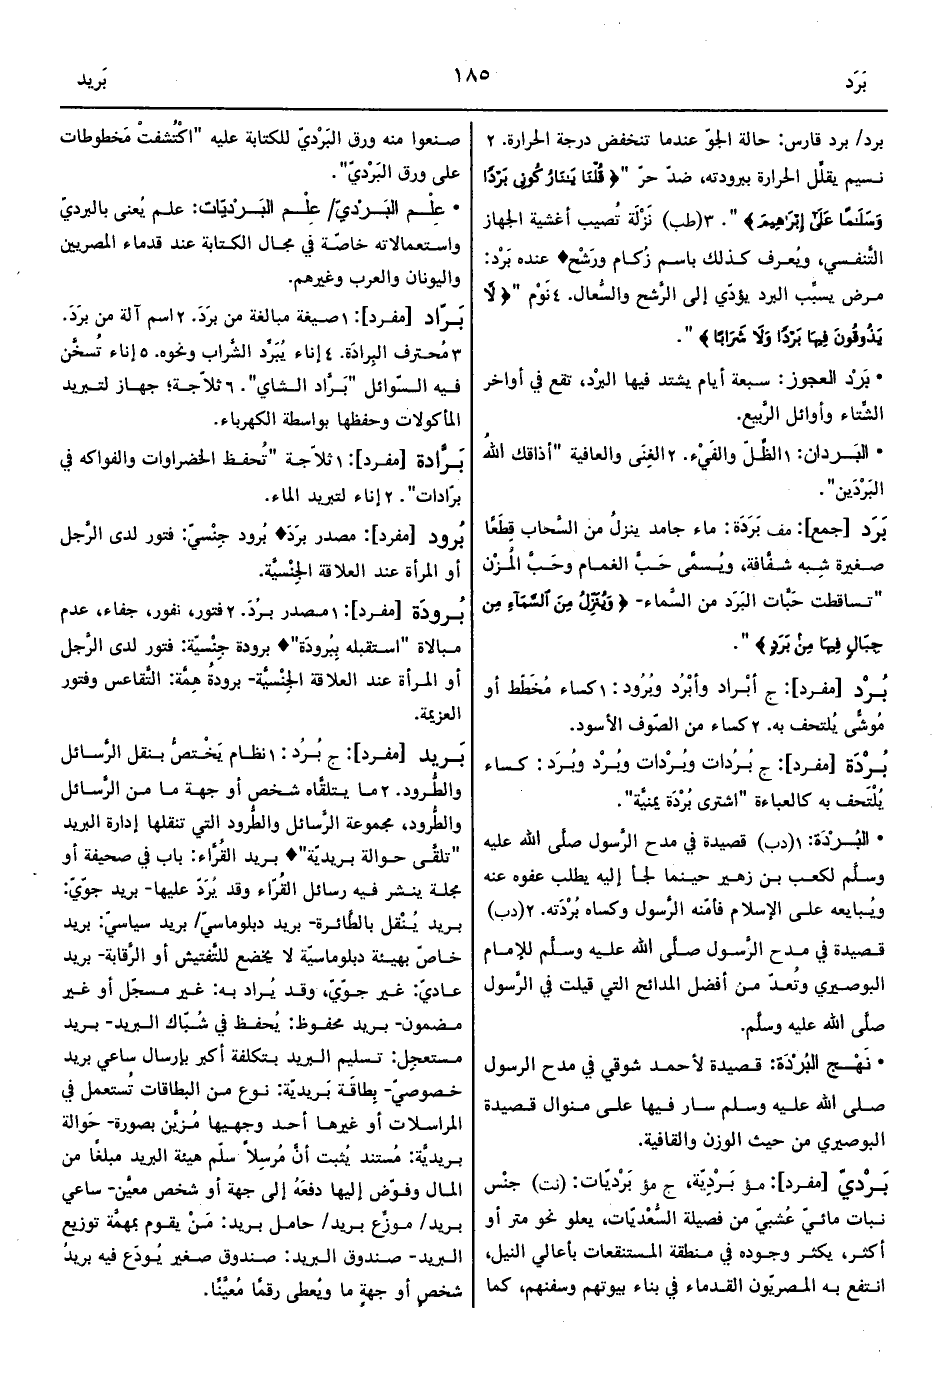 بَرَد
١٨٥
بَريد
برد/ برد قارس: حالة الجوّ عندما تنخفض درجة الحرارة. ٢
نسيم يقلّل الحرارة ببرودته، ضدّ حرّ "﴿ قُلْنَا يَـٰنَارُ كُونِى بَرْدًا
وَسَلَـٰمًا عَلَىٰٓ إِبْرَٰهِيمَ﴾ ". ٣(طب) نَزْلَة تُصيب أغشية الجهاز
التَّنفسي، ويُعرف كذلك باسم زُكام ورَشْح♦ عنده بَرْد:
مرض يسبِّب البرد يؤدّي إلى الرَّشح والسُّعال. ٤ نَوْم "﴿ لَّا
يَذُوقُونَ فِيهَا بَرْدًا وَلَا شَرَابًا ﴾ ".
• بَرْد العجوز: سبعة أيام يشتد فيها البرْد، تقع في أواخر
الشّتاء وأوائل الرَّبيع.
• البَردان: ١الظّلّ والفَيْء. ٢ الغِنَى والعافية "أذاقك اللهُ
البَرْدَين".
بَرَد [جمع]: مف بَرَدَة: ماء جامد ينزلُ من السَّحاب قِطَعًا
صغيرة شبه شفَّافة، ويُسمَّى حَبَّ الغمام وحَبَّ الُمزْن
"تساقطت حَبَّات البَرَد من السَّماء- ﴿ وَيُنَزِّلُ مِنَ ٱلسَّمَآءِ مِن
جِبَالٍ فِيهَا مِنۢ بَرَدٍ ﴾ ".
بُرْد [مفرد]: ج أبْراد وأبْرُد وبُرُود: ١كساء مُخَطَّط أو
مُوشًّى يُلتحف به. ٢ كساء من الصّوف الأسود.
بُرْدَة [مفرد]: ج بُرُدات وبُرْدات وبُرْد وبُرَد: كساء
يُلْتَحف به كالعباءة "اشترى بُرْدَة يمنيَّة".
• البُرْدَة: ١(دب) قصيدة في مدح الرَّسول صلَّى الله عليه
وسلَّم لكعب بن زهير حينما لجأ إليه يطلب عفوه عنه
ويُبايعه على الإسلام فأمَّنه الرَّسول وكساه بُرْدَته. ٢(دب)
قصيدة في مدح الرَّسول صلَّى الله عليه وسلَّم للإمام
البوصيري وتُعدّ من أفضل المدائح التي قيلت في الرَّسول
صلَّى الله عليه وسلَّم.
• نَهْج البُرْدَة: قصيدة لأحمد شوقي في مدح الرسول
صلى الله عليه وسلم سار فيها على منوال قصيدة
البوصيري من حيث الوزن والقافية.
بَرْديّ [مفرد]: مؤ بَرْديَّة، ج مؤ بَرْديَّات: (نت) جنْس
نبات مائيّ عُشبيّ من فصيلة السُّعْديَّات، يعلو نحو متر أو
أكثر، يكثر وجوده في منطقة المستنقعات بأعالي النيل،
انتفع به المصريّون القدماء في بناء بيوتهم وسفنهم، كما
صنعوا منه ورق البَرْديّ للكتابة عليه "اكْتُشفتْ مَخطوطات
على ورق البَرْديّ".
• عِلْم البَرْديّ/ عِلْم البَرْديَّات: علم يُعنى بالبرديّ
واستعمالاته خاصّة في مجال الكتابة عند قدماء المصريين
واليونان والعرب وغيرهم.
بَرَّاد [مفرد]: ١ صيغة مبالغة من بردَ. ٢ اسم آلة من بردَ.
٣ مُحترف البِرادَة. ٤ إناء يُبَرَّد الشَّراب ونحوه. ٥ إناء تُسخَّن
فيه السَّوائل "بَرَّاد الشاي". ٦ ثلاّجة؛ جهاز لتبريد
المأكولات وحفظها بواسطة الكهرباء.
بَرَّادة [مفرد]: ١ ثلاّجة "تُحفظ الخضراوات والفواكه في
برَّادات". ٢ إناء لتبريد الماء.
بُرود [مفرد]: مصدر بردَ♦ بُرود جِنْسيّ: فتور لدى الرَّجل
أو المرأة عند العلاقة الجنْسيَّة.
بُرودَة [مفرد]: ١ مصدر بردَ. ٢ فتور، نفور، جفاء، عدم
مبالاة "استقبله بِبُرودَة"♦ برودة جِنْسيّة: فتور لدى الرَّجل
أو المرأة عند العلاقة الجنْسيَّة- برودةُ هِمَّة: التَّقاعس وفتور
العزيمة.
بَريد [مفرد]: ج بُرُد: ١ نظام يَخْتصُّ بنقل الرَّسائل
والطُّرود. ٢ ما يتلقَّاه شخص أو جهة ما من الرَّسائل
والطُّرود، مجموعة الرَّسائل والطُّرود التي تنقلها إدارة البريد
"تلقَّى حوالة بريديّة"♦ بريد القُرَّاء: باب في صحيفة أو
مجلة ينشر فيه رسائل القُرَّاء وقد يُرَدّ عليها- بريد جوّيّ:
بريد يُنْقل بالطَّائرة- بريد دبلوماسيّ/ بريد سياسيّ: بريد
خاصّ بهيئة دبلوماسية لا يخضع للتَّفتيش أو الرَّقابة- بريد
عاديّ: غير جوّيّ، وقد يُراد به: غير مسجّل أو غير
مضمون- بريد محفوظ: يُحفظ في شُبَّاك البريد- بريد
مستعجل: تسليم البريد بتكلفة أكبر بإرسال ساعي بريد
خصوصيّ- بطاقَة بَريديَّة: نوع من البطاقات تُستعمل في
المراسلات أو غيرها أحد وجهيها مُزيَّن بصورة- حَوالة
بريديَّة: مُستند يُثبت أنَّ مُرسِلاً سلَّم هيئة البريد مبلغًا من
المال وفوَّض إليها دفعَهُ إلى جهة أو شخص معيَّن- ساعي
بريد/ موزِّع بريد/ حامل بريد: مَنْ يقوم بمهمَّة توزيع
البريد- صندوق البريد: صندوق صغير يُودَع فيه بريدُ
شخصٍ أو جهةٍ ما ويُعطى رقمًا مُعيَّنًا.